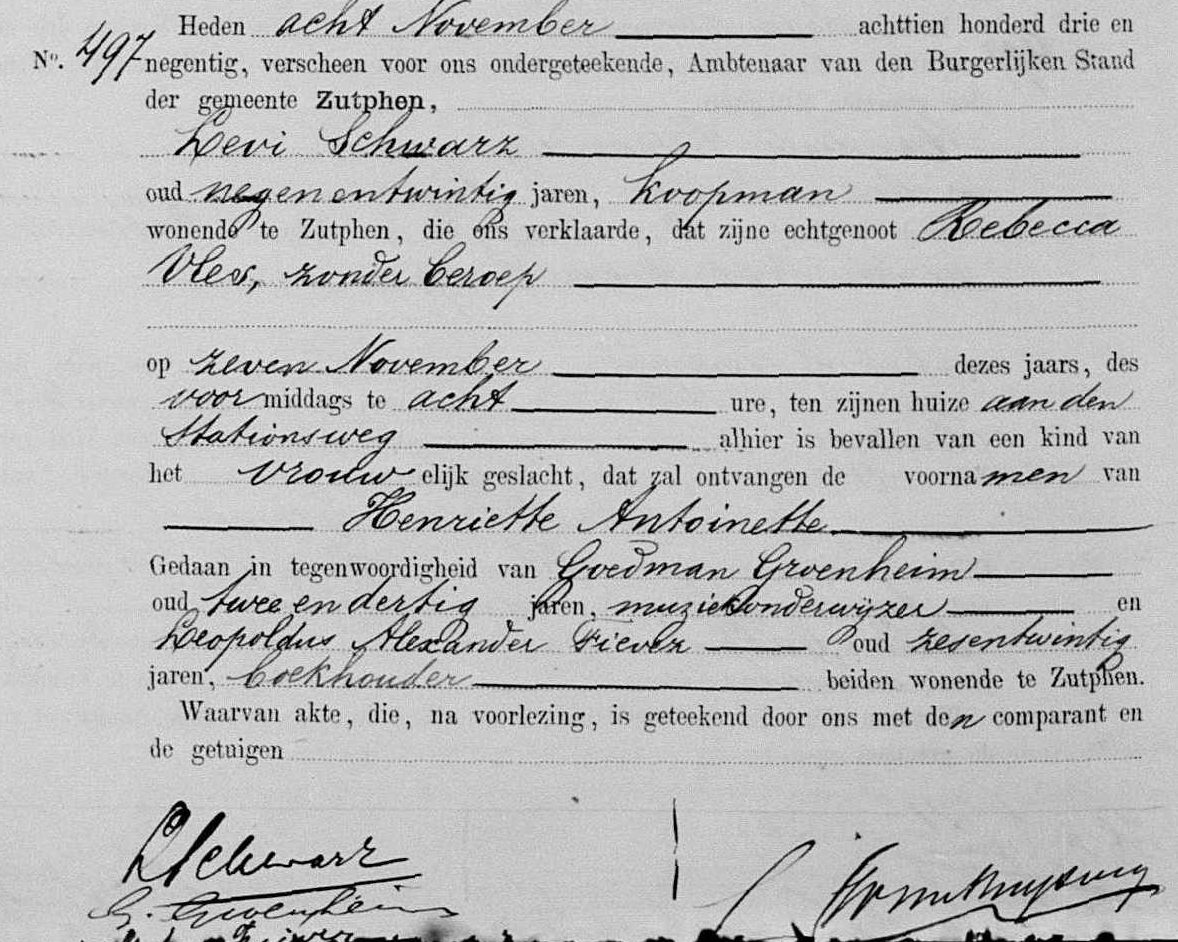 Heden acht November achttien honderd drie en
No. 497 negentig, verscheen voor ons ondergeteekende, Ambtenaar van den Burgerlijken Stand
der gemeente Zutphen,
Levi Schwarz
oud negenentwintig jaren, koopman
wonende te Zutphen, die ons verklaarde, dat zijne echtgenoot Rebecca
Vles, zonder beroep
op zeven November dezes jaars, des
voormiddags te acht ure, ten zijnen huize aan den
Stationsweg alhier is bevallen van een kind van
het vrouwelijk geslacht, dat zal ontvangen de voornamen van
Henriette Antoinette
Gedaan in tegenwoordigheid van Goedman Groenheim
oud twee en dertig jaren, muziekonderwijzer en
Leopoldus Alexander Fievez oud zesentwintig
jaren, boekhouder beiden wonende te Zutphen.
Waarvan akte, die, na voorlezing, is geteekend door ons met den comparant en
de getuigen
LSchwarz
G. Groenheim